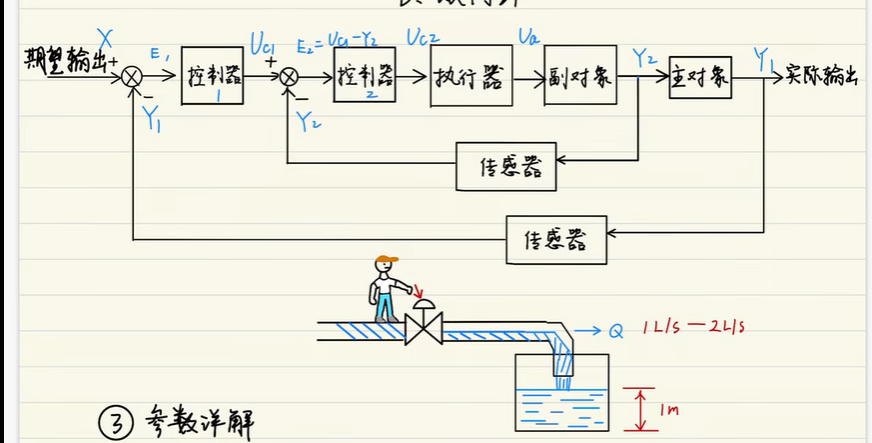 X
期望输出
+
E₁
控制器
1
Uc1
+
E₂=Uc1-Y₂
控制器
2
Uc2
执行器
Ua
副对象
Y₂
主对象
Y₁
实际输出
-
Y₁
-
Y₂
传感器
传感器
Q 1L/s-2L/s
1m
③ 参数详解